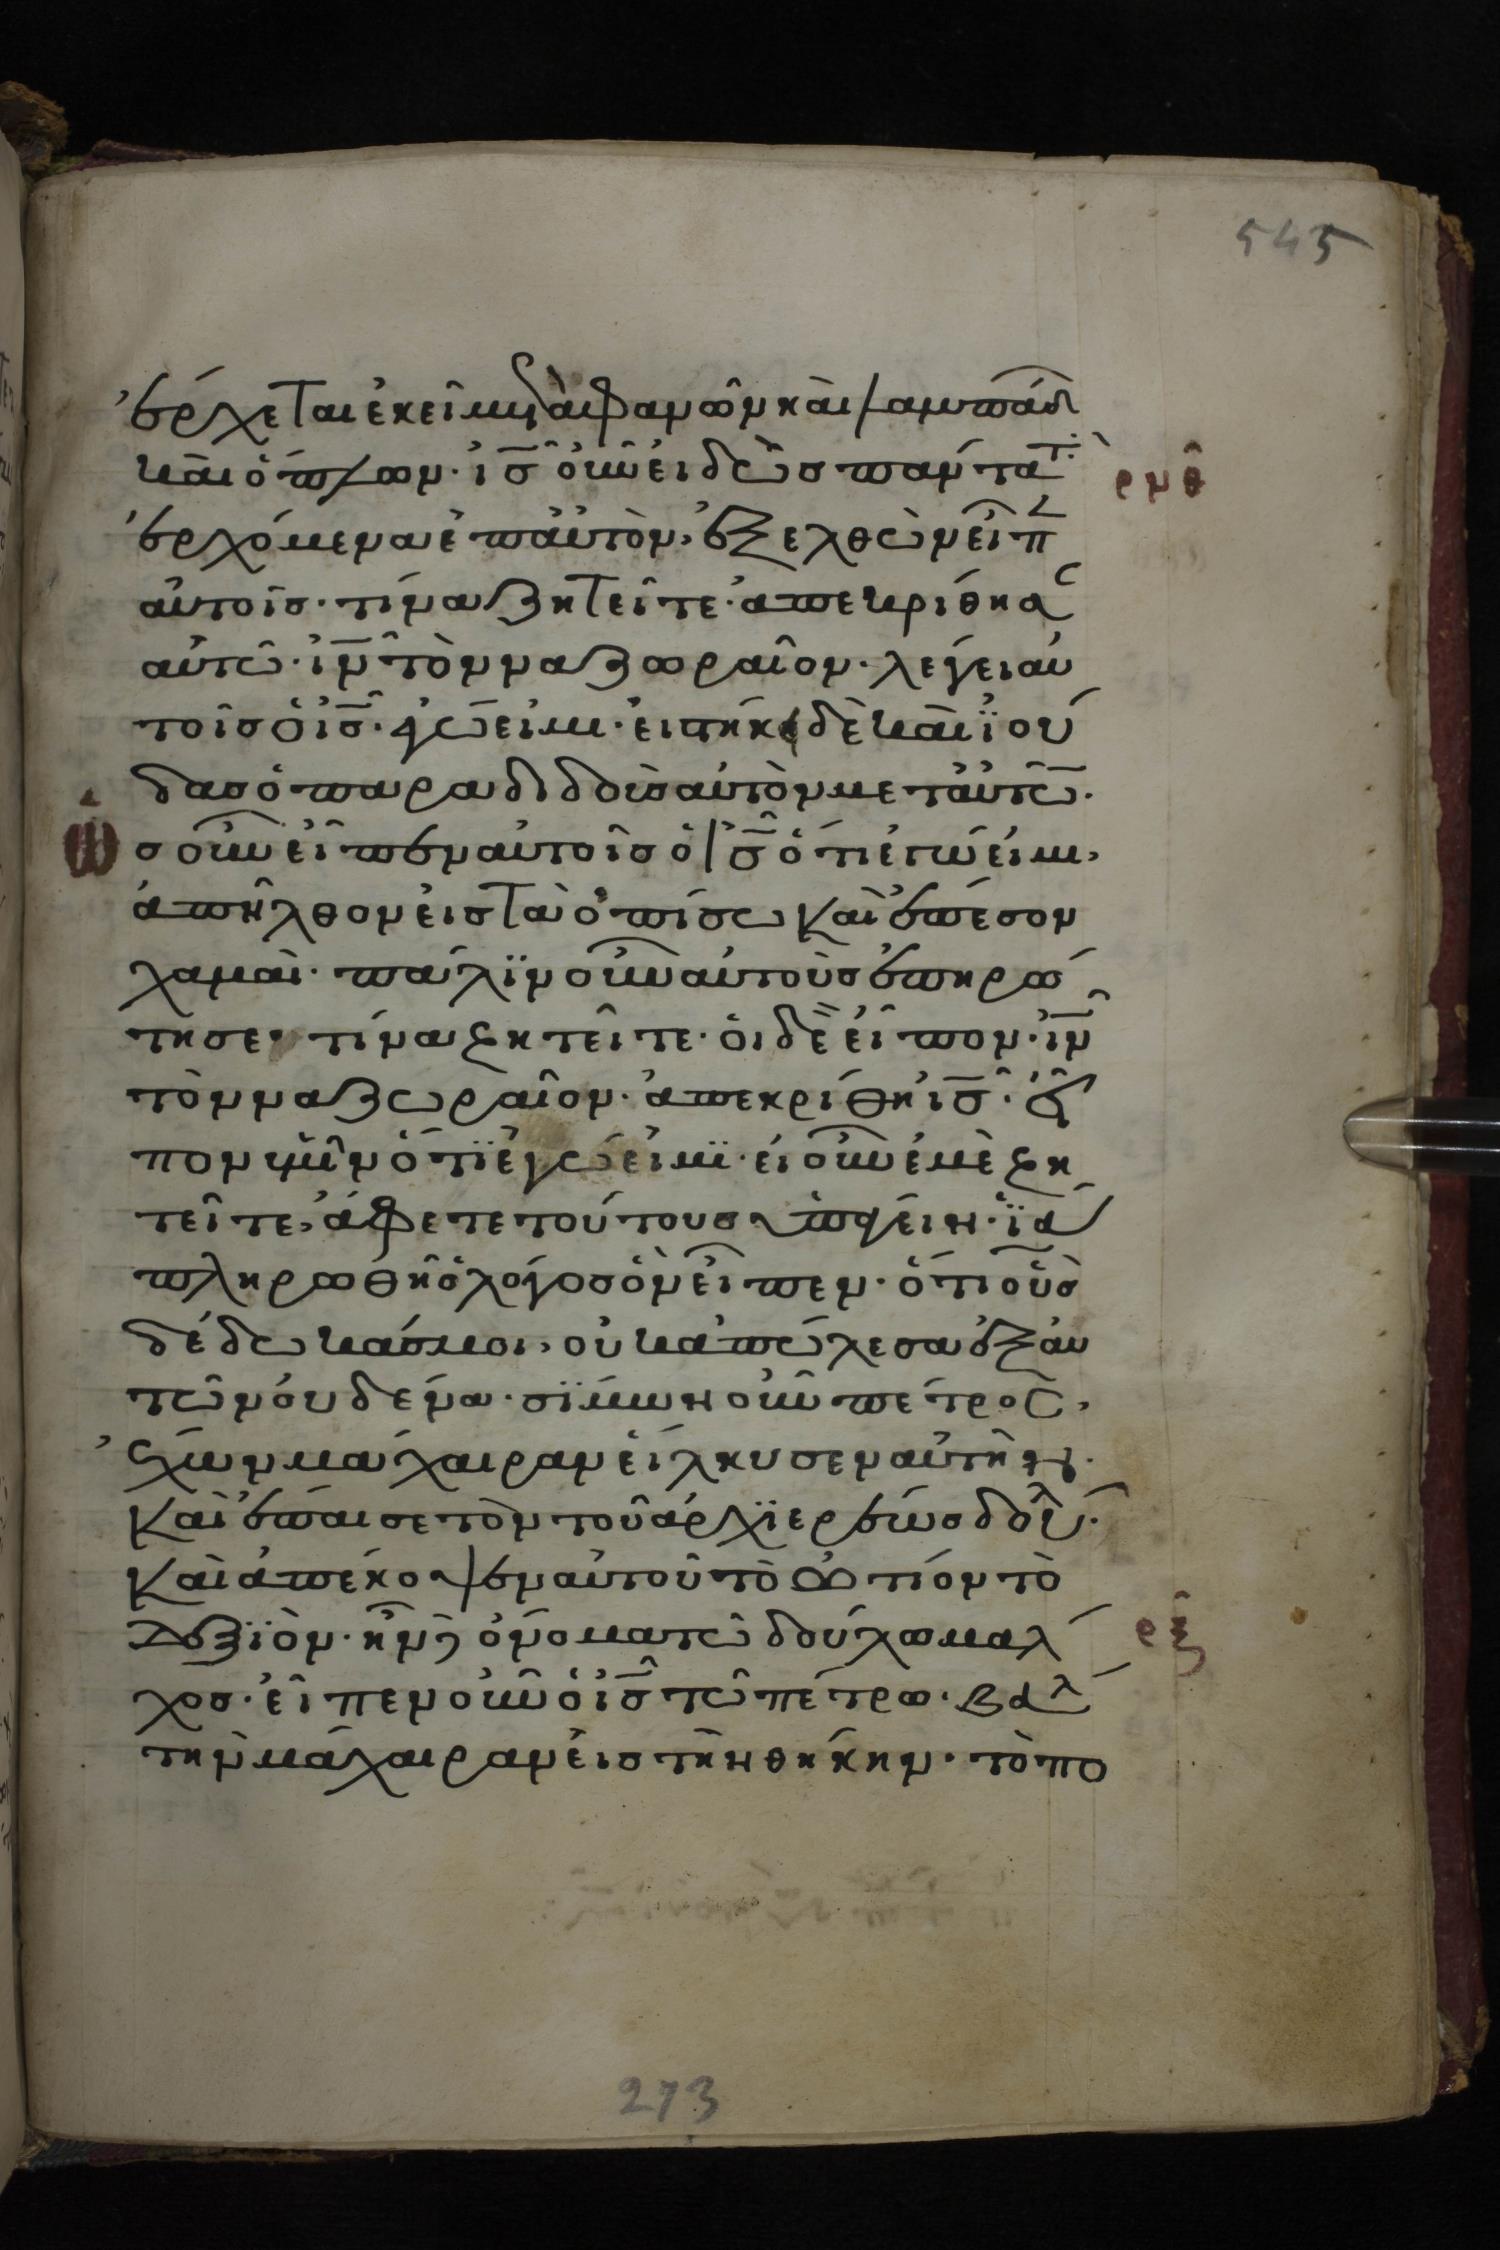 545
ἔρχεται ἐκεῖ μετὰ φανῶν καὶ λαμπάδ
καὶ ὅπλων· ις̅ οὖν εἰδὼς πάντα τ:
ρμθ
ἐρχόμενα ἐπ αὐτὸν, ἐξελθὼν εἶπ
αὐτοῖς· τίνα ζητεῖτε· ἀπεκρίθησ
αὐτῶ· ιν̅ τὸν ναζωραῖον· λέγει αὐ
τοῖς ὁ ις̅· ἐγώ εἰμι· εἱστήκει δὲ καὶ ϊού
δας ὁ παραδιδοὺς αὐτὸν μετ αὐτῶ·
Ὡς οὖν εἶπεν αὐτοῖς ὁ ις̅ ὅτι ἐγώ εἰμι,
ἀπῆλθον εἰς τὰ ὀπίσω καὶ ἔπεσον
χαμαί· πάλϊν οὖν αὐτοὺς ἐπηρώ
τησε· τίνα ζητεῖτε· οἱ δὲ εἶπον· ιν̅
τὸν ναζωραῖον· ἀπεκρίθη ις̅· εἶ
πον ὑμῖν ὅτϊ ἐγώ εἰμϊ· εἰ οὖν ἐμὲ ζη
τεῖτε, ἄφετε τούτους ὑπάγειν· ἵνα
πληρωθῆ ὁ λόγος ὃν εἶπεν· ὅτι οὓς
δέδωκάς μοι, οὐκ ἀπώλεσα ἐξ αὐ
τῶν οὐδένα· σϊμων οὖν πέτρος,
ἔχων μάχαιραν εἵλκυσεν αὐτὴν·
καὶ ἔπαισε τὸν τοῦ ἀρχϊερέως δοῦλ·
καὶ ἀπέκοψεν αὐτοῦ τὸ ὠτίον τὸ
δεξϊὸν· ἦν δὲ ὄνομα τῶ δούλω μάλ
ρξ
χος· εἶπεν οὖν ὁ ις̅ τῶ πέτρω· βάλ
τὴν μάχαιραν εἰς τὴν θήκην· τὸ πο
273